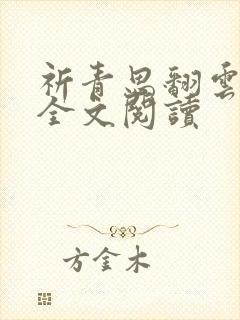 祈青思翻雲
全文閱讀
方金木